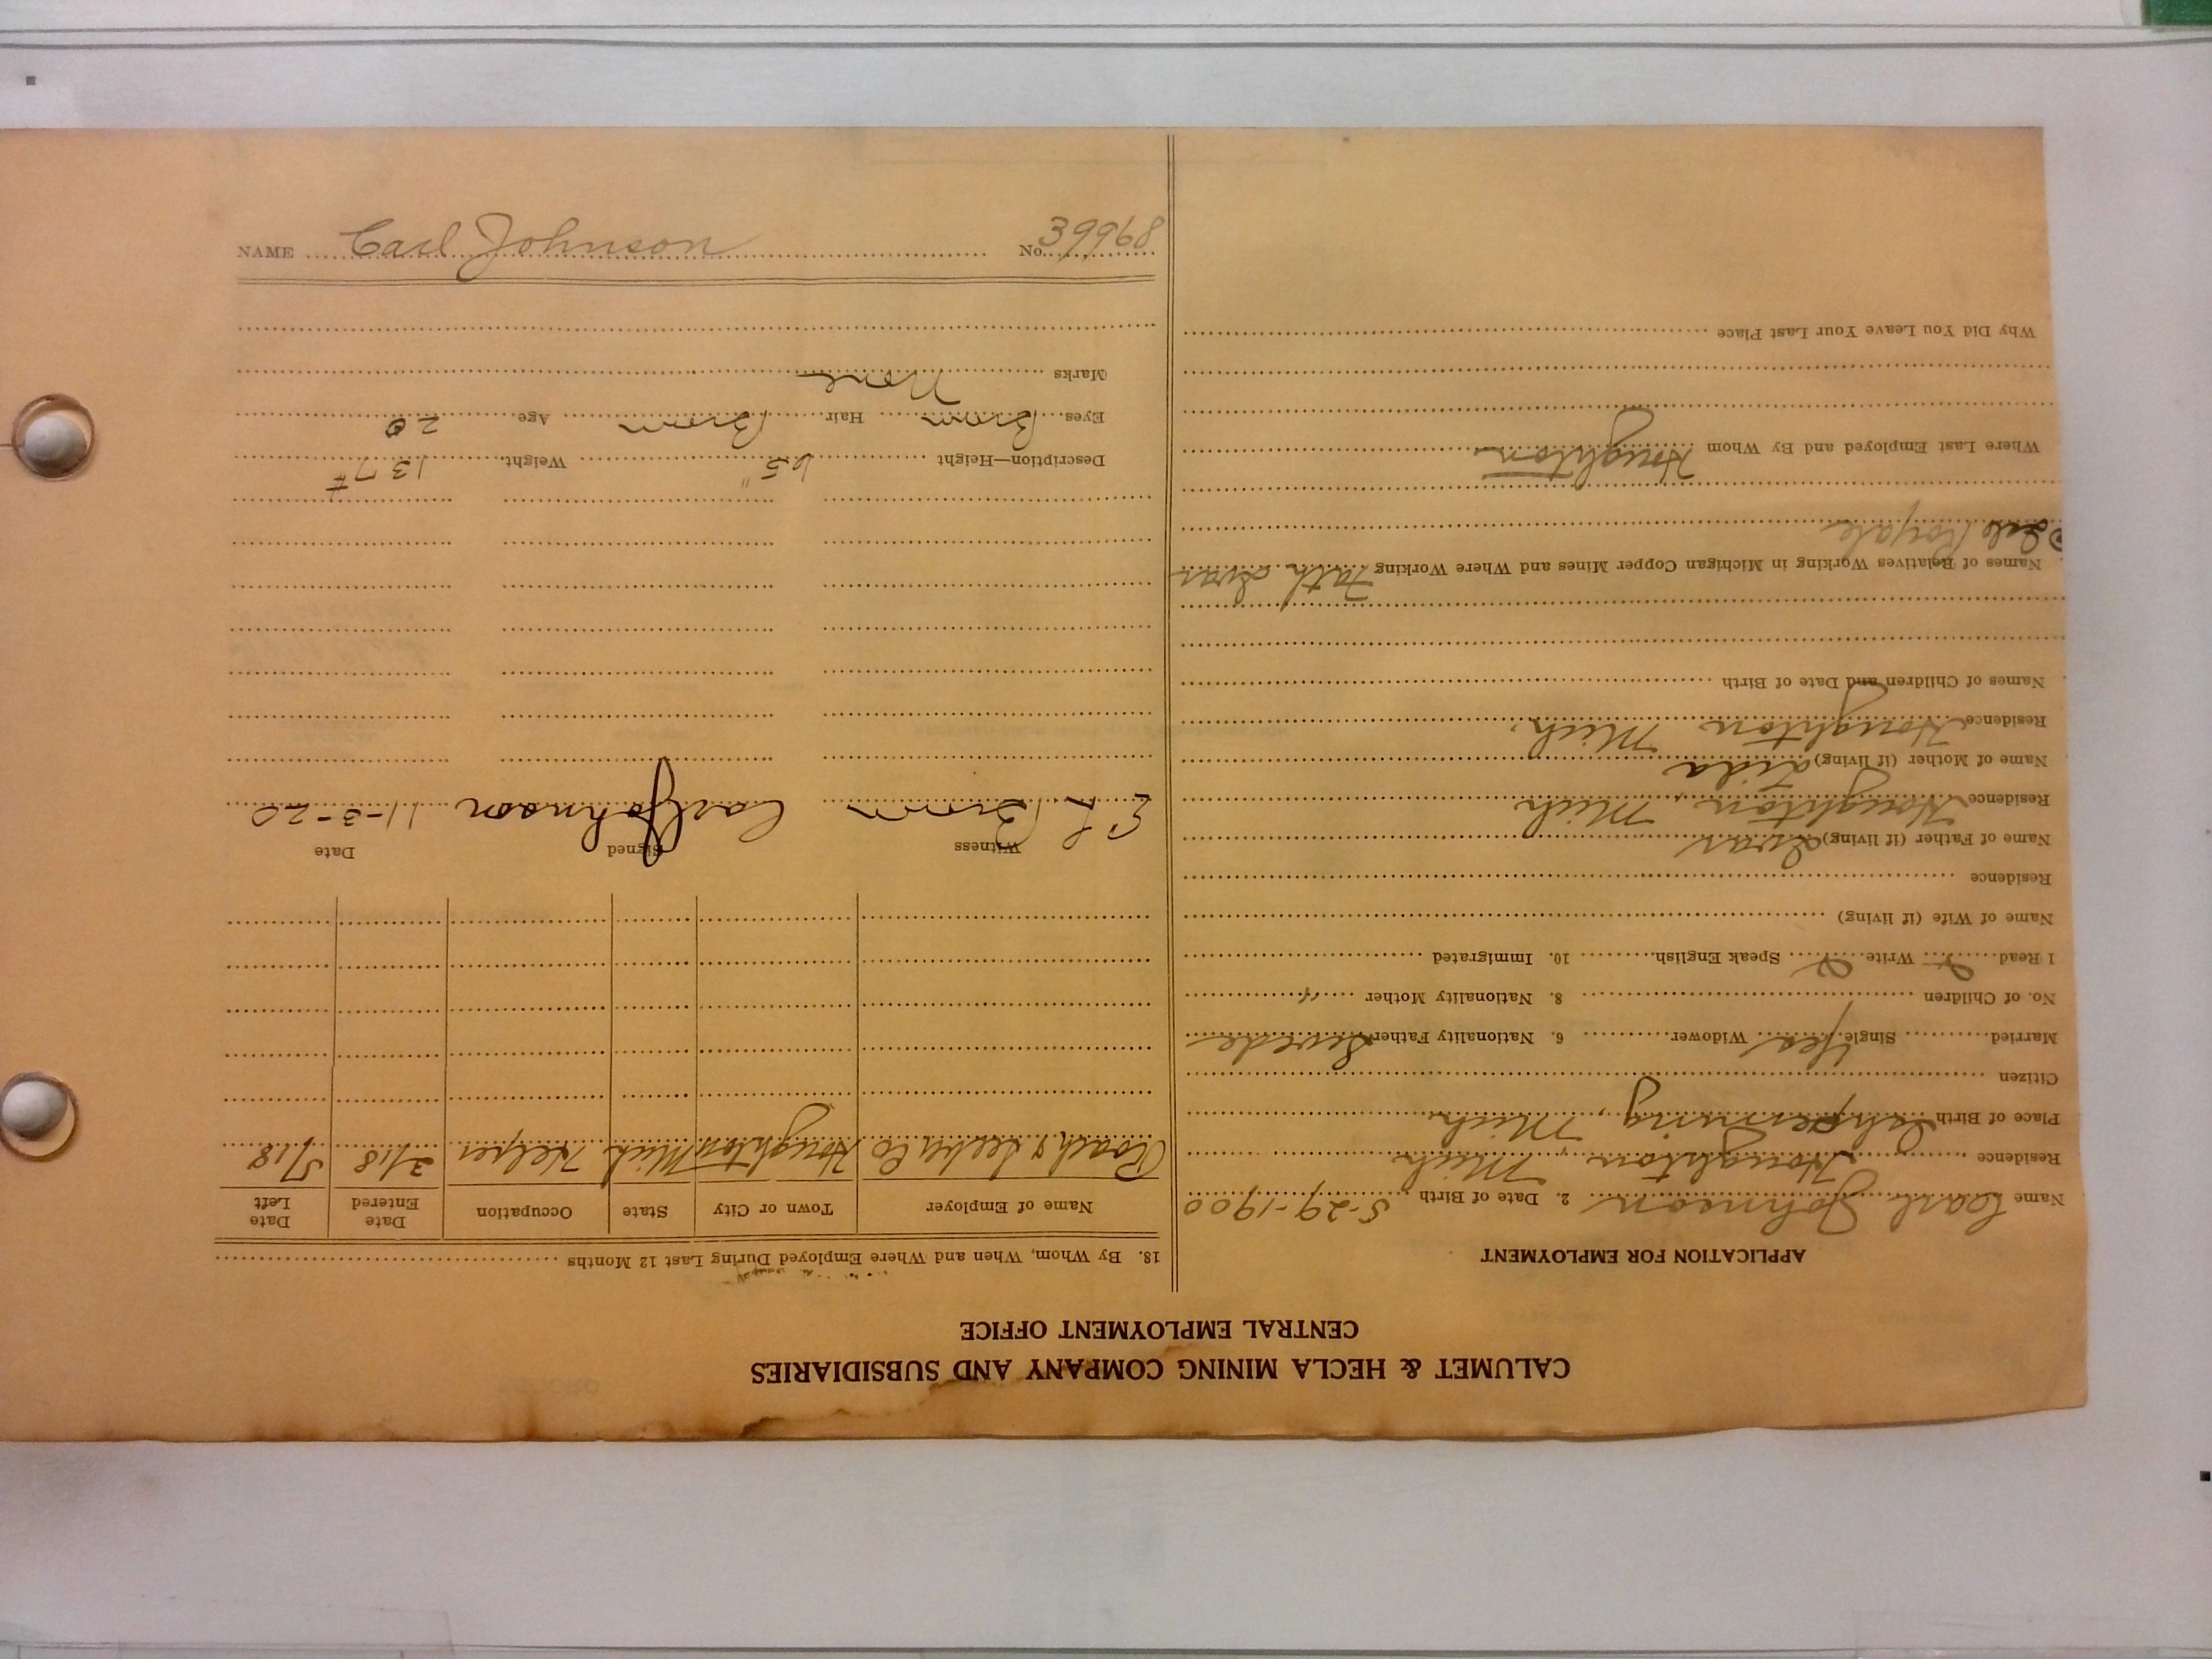 CALUMET & HECLA MINING COMPANY AND SUBSIDIARIES
CENTRAL EMPLOYMENT OFFICE
APPLICATION FOR EMPLOYMENT
Name Carl Johnson 2. Date of Birth 5-29-1900
Residence Houghton, Mich
Place of Birth Ishpeming, Mich
Citizen
Married Single Yes Widower 6. Nationality Father Swede
No. of Children 8. Nationality Mother "
1 Read Write Speak English 10. Immigrated
Name of Wife (if living)
Residence
Name of Father (if living) Ivar
Residence Houghton, Mich
Name of Mother (if living) Lida
Residence Houghton Mich.
Names of Children and Date of Birth
Names of Relatives Working in Michigan Copper Mines and Where Working Fath Ivar
Isle Royale
Where Last Employed and By Whom Houghton
Why Did You Leave Your Last Place
18. By Whom, When and Where Employed During Last 12 Months
Name of Employer Town or City State Occupation Date Entered Date Left
Roach & Co Houghton Mich Helper 2/18 5/18
Witness Signed Date
E L Brown Carl Johnson 11-3-20
Description—Height 65" Weight 137#
Eyes Brown Hair Brown Age 20
Marks None
NAME Carl Johnson No. 39968